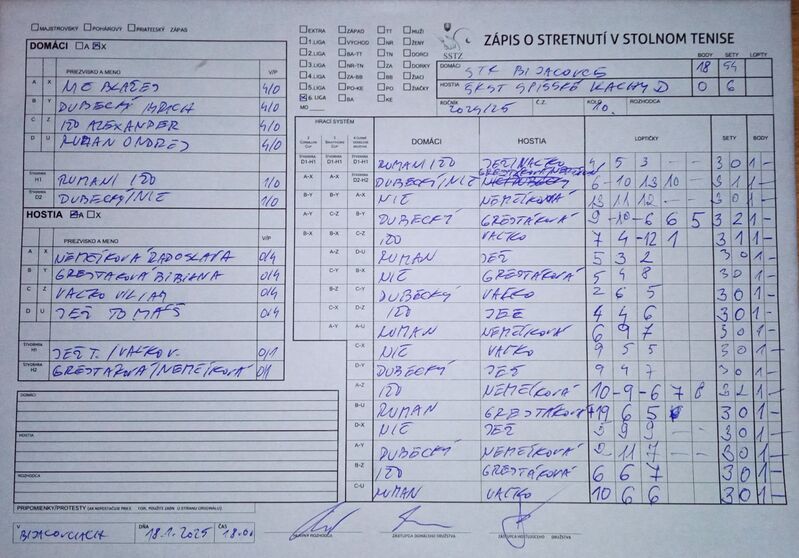 MAJSTROVSKÝ POHÁROVÝ PRIATEĽSKÝ ZÁPAS
ZÁPIS O STRETNUTÍ V STOLNOM TENISE
SSTZ
EXTRA ZÁPAD TT MUŽI
1. LIGA VÝCHOD NR ŽENY
2. LIGA BA-TT TN DORCI
3. LIGA NR-TN ZA DORKY
4. LIGA ZA-BB BB ŽIACI
5. LIGA PO-KE PO ŽIAČKY
X 6. LIGA BA KE
MO
BODY SETY LOPTY
DOMÁCI STK BIJACOVCE 18 54
HOSTIA GKST SPIŠSKÉ VLACHY D 0 6
ROČNÍK 2024/25 Č.Z. KOLO 10. ROZHODCA
DOMÁCI A X X
PRIEZVISKO A MENO V/P
A X NIČ BLAŽEJ 4/0
B Y DUBECKÝ 4/0
C Z IŽO ALEXANDER 4/0
D U RUMAN ONDREJ 4/0
ŠTVORHRA H1 RUMAN/IŽO 1/0
ŠTVORHRA D2 DUBECKÝ/NIČ 1/0
HOSTIA X A X
PRIEZVISKO A MENO V/P
A X NEMČÍKOVÁ RADOSLAVA 0/4
B Y GREŠTÁKOVÁ BIBIANA 0/4
C Z VAĽKO VILIAM 0/4
D U JEŽ TOMÁŠ 0/4
ŠTVORHRA H1 JEŽ T./VAĽKO V. 0/1
ŠTVORHRA H2 GREŠTÁKOVÁ/NEMČÍKOVÁ 0/1
HRACÍ SYSTÉM DOMÁCI HOSTIA LOPTIČKY SETY BODY
D1-H1 D1-H1 D1-H1 RUMAN/IŽO JEŽ/VAĽKO 4 5 3 - - 3 0 1 -
A-X A-X D2-H2 DUBECKÝ/NIČ GREŠTÁKOVÁ/NEMČÍKOVÁ 6 -10 13 10 - 3 1 1 -
B-Y B-Y A-X NIČ NEMČÍKOVÁ 13 11 12 - - 3 0 1 -
A-Y C-Z B-Y DUBECKÝ GREŠTÁKOVÁ 9 -10 -6 6 5 3 2 1 -
B-X B-X C-Z IŽO VAĽKO 7 4 -12 1 3 1 1 -
A-Z D-U RUMAN JEŽ 5 3 2 3 0 1 -
C-Y B-X NIČ GREŠTÁKOVÁ 5 4 8 3 0 1 -
B-Z C-Y DUBECKÝ VAĽKO 2 6 5 3 0 1 -
C-X D-Z IŽO JEŽ 4 4 6 3 0 1 -
A-Y A-U RUMAN NEMČÍKOVÁ 6 9 7 3 0 1 -
C-X NIČ VAĽKO 9 5 5 3 0 1 -
D-Y DUBECKÝ JEŽ 9 4 7 3 0 1 -
A-Z IŽO NEMČÍKOVÁ 10 -9 -6 7 8 3 2 1 -
B-U RUMAN GREŠTÁKOVÁ 19 6 5 3 0 1 -
D-X NIČ JEŽ 9 9 - - 3 0 1 -
A-Y DUBECKÝ NEMČÍKOVÁ 9 11 7 - - 3 0 1 -
B-Z IŽO GREŠTÁKOVÁ 6 6 7 3 0 1 -
C-U RUMAN VAĽKO 10 6 6 3 0 1 -
DOMÁCI
HOSTIA
ROZHODCA
PRIPOMIENKY/PROTESTY (AK NEPOSTAČUJE PRIESTOR, POUŽITE ZADNÚ STRANU ORIGINÁLU)
V BIJACOVCIACH DŇA 18.1.2025 ČAS 18.00
HLAVNÝ ROZHODCA ZÁSTUPCA DOMÁCEHO DRUŽSTVA ZÁSTUPCA HOSŤUJÚCEHO DRUŽSTVA